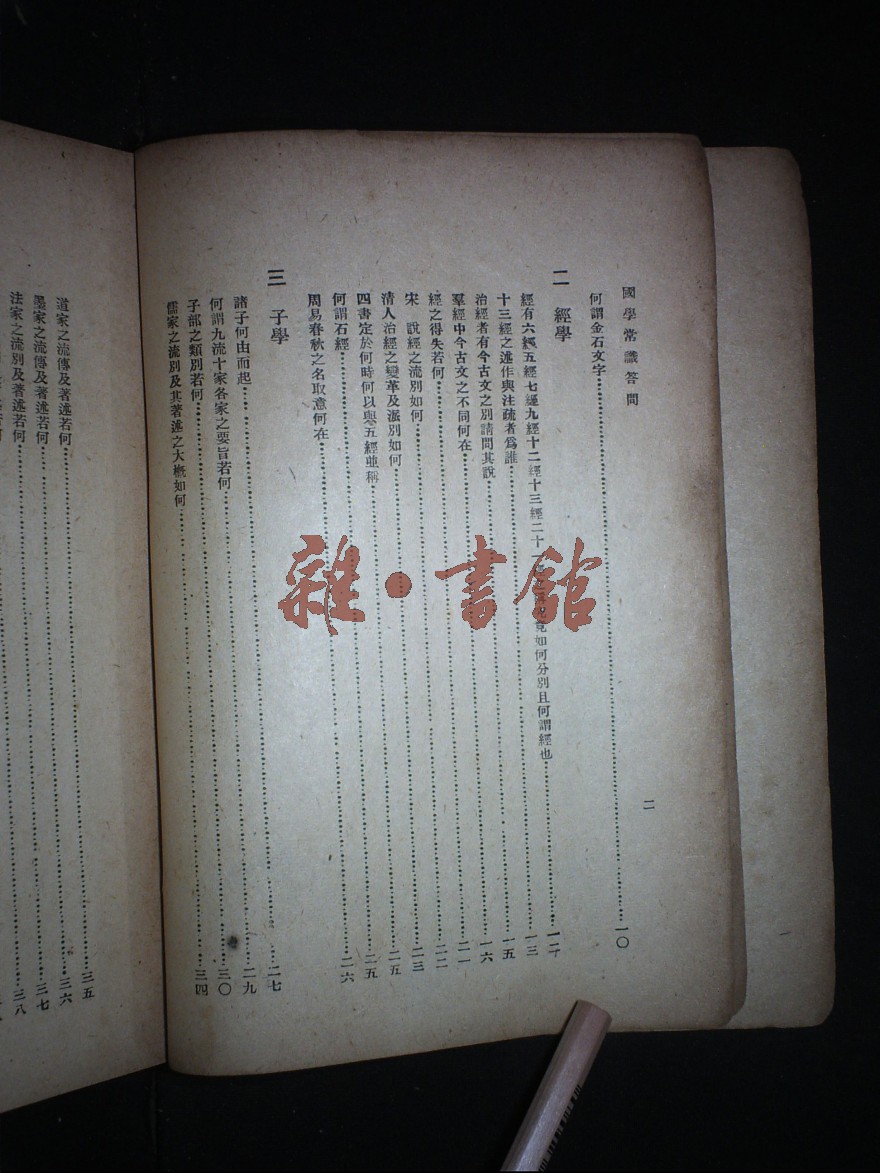 國學常識答問 二
何謂金石文字……一〇
二 經學……
經有六經五經七經九經十二經十三經二十一如何分別且何謂經也……一三
十三經之述作與注疏者爲誰……一五
治經者有今古文之別請問其說……一六
羣經中今古文之不同何在……二一
經之得失若何……二二
宋 說經之流別如何……二三
清人治經之變革及派別如何……二五
四書定於何時何以與五經並稱……二五
何謂石經……二六
周易春秋之名取意何在……
三 子學……二七
諸子何由而起……二九
何謂九流十家各家之要旨若何……三〇
子部之類別若何……三四
儒家之流別及其著述之大概如何……
道家之流傳及著述若何……三五
墨家之流傳及著述若何……三六
法家之流別及著述若何……三七
三八
雜·書館